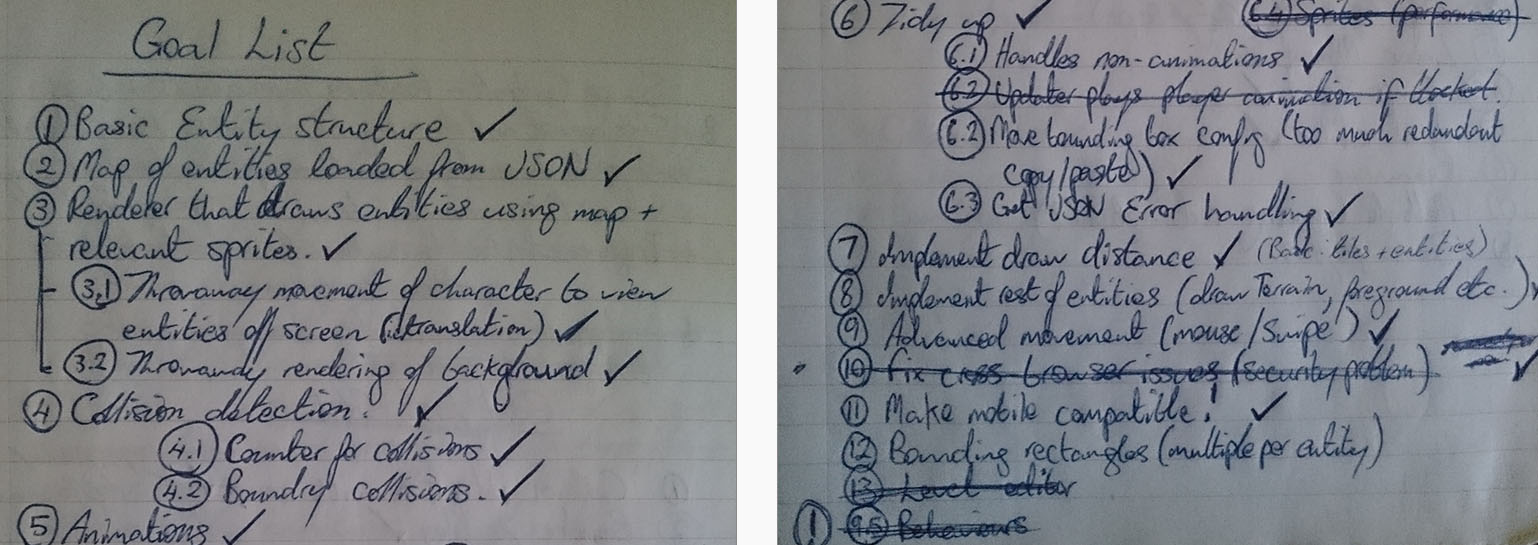 Goal List
① Basic Entity structure ✓
② Map of entities loaded from JSON ✓
③ Renderer that draws entities using map +
relevant sprites. ✓
3.1 Throwaway movement of character to view
entities off screen (translation) ✓
3.2 Throwaway rendering of background ✓
④ Collision detection. ✓
4.1 Counter for collisions ✓
4.2 Boundry collisions. ✓
⑤ Animations ✓
⑥ Tidy up ✓
6.4 Sprites (performance)
6.1 Handles non-animations ✓
6.2 Updater plays player animation if blocked.
6.2 Move bounding box config (too much redundant
copy/paste) ✓
6.3 Get JSON Error handling ✓
⑦ Implement draw distance ✓ (Basic tiles + entities)
⑧ Implement rest of entities (draw Terrain, foreground etc.) ✓
⑨ Advanced movement (mouse/Swipe) ✓
⑩ Fix cross browser issues (security problem) ✓
⑪ Make mobile compatible! ✓
⑫ Bounding rectangles (multiple per entity)
⑬ Level editor
! 9.5 Behaviours